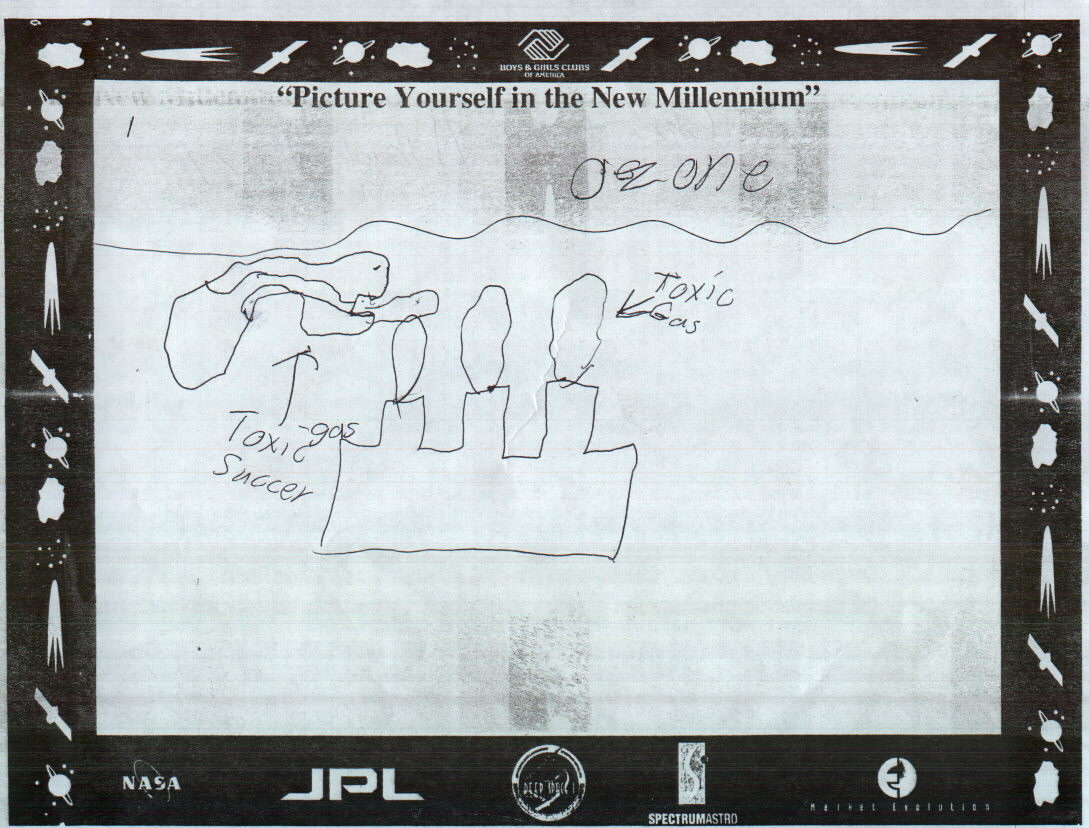 BOYS & GIRLS CLUBS
OF AMERICA
“Picture Yourself in the New Millennium”
ozone
Toxic
Gas
Toxic-gas
Succer
NASA
JPL
DEEP SPACE 1
SPECTRUMASTRO
Market Evolution